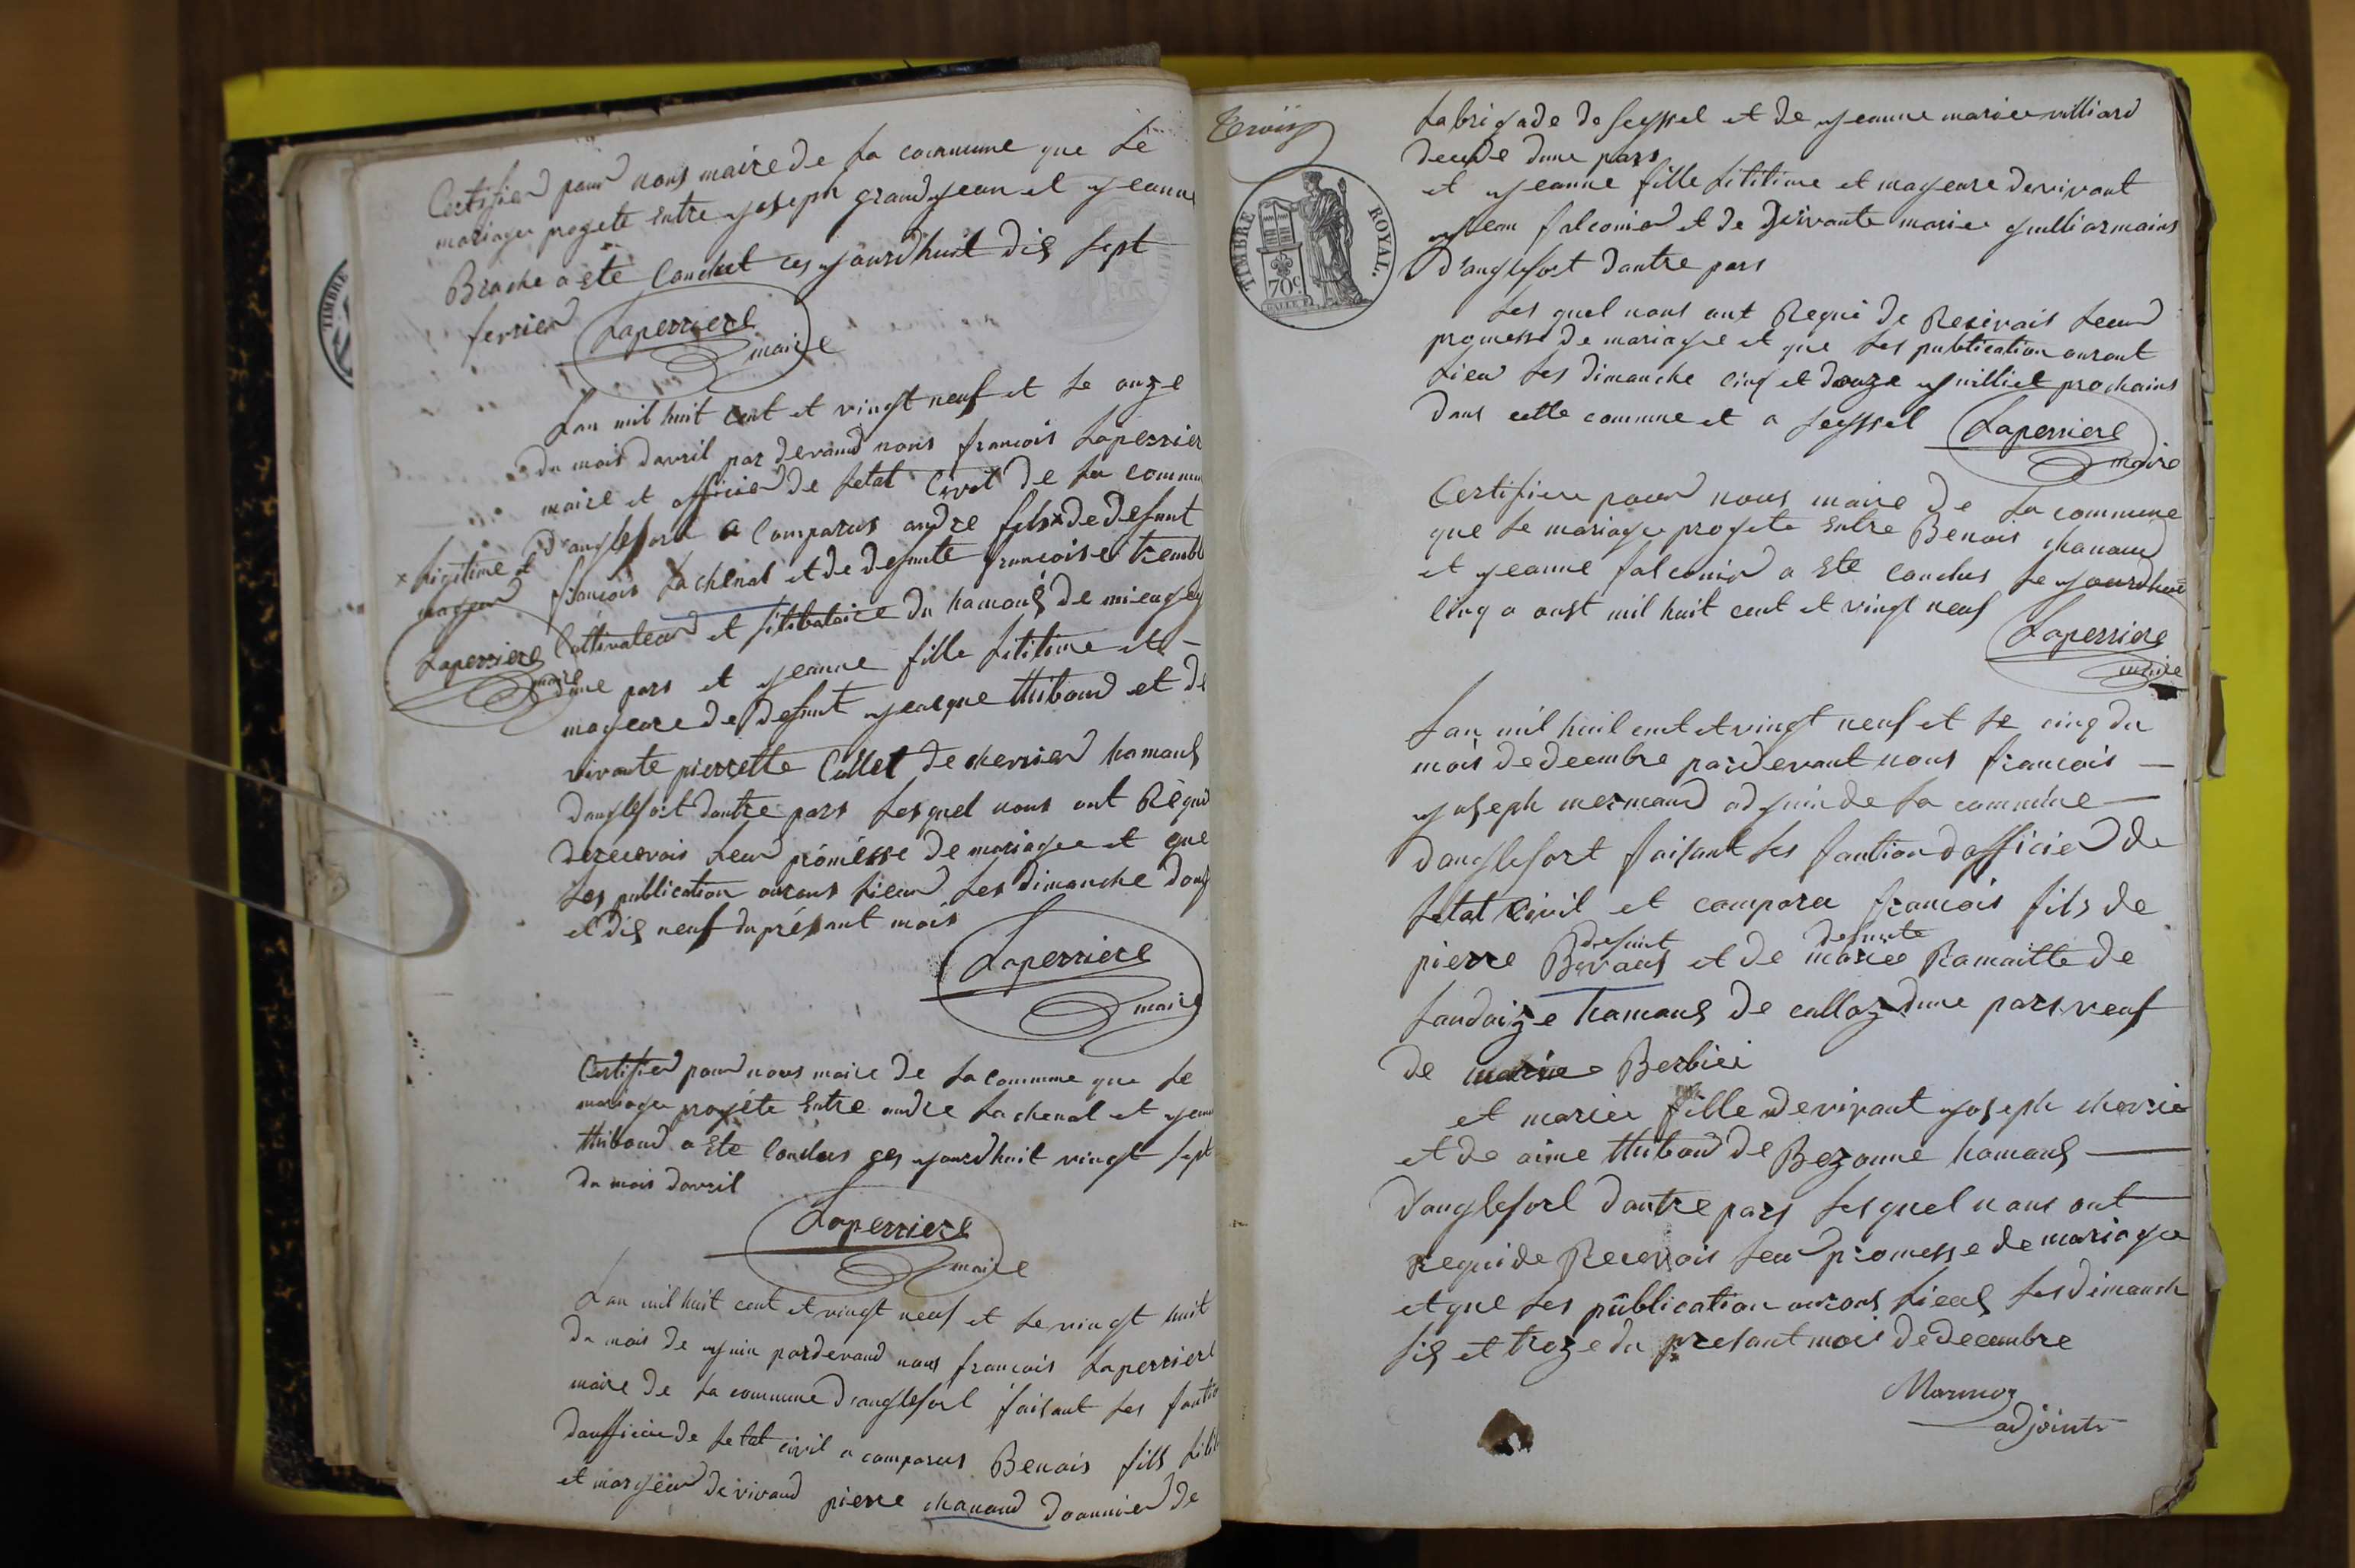 Certifier pour nous maire de la commune que le
mariage progeté entre joseph grandjean et jeanne
Brache a été Conclut ces jourdhuit dis sept
fevrier
Laperriere
maire
Lan mil huit cent et vingt neuf et le onze
du mois davril par devand nous francois Laperrier
maire et officier de letat Civil de la commu
d'anglefort a Comparus andre fils x de defunt
x ligitime et
mageur
francois Lachenal et de defunte francoise trembl
Cultivateur et silibataire du hamaus de mieugey
Laperriere
maire
dune pars et jeanne fille lititime et
mageure de defunt jeacque thiboud et de
vivante pierrette Callet de cherrier hamaus
danglefort dautre pars lesquel nous ont Requi
derecevois leur promesse de mariage et que
les publication aurons lieux les dimanche douz
et dis neuf du présant mois
Laperriere
maire
Certifier pour nous maire de la commune que le
mariage progeté entre andre Lachenal et jean
thiboud a été Conclus ces jourdhuit vingt sept
du mois davril
Laperriere
maire
Lan mil huit cent et vingt neuf et le vingt huit
du mois de juin pardevand nous francois Laperriere
maire de la commune d'anglefort faisant les fontio
daufficier de letat civil a comparus Benois fils liti
et margeur de vivand pierre chanaud douannier de
Trois
TIMBRE ROYAL.
70c
labrigade de seyssel et de jeanne marie villiard
decede dune pars
et jeanne fille lititime et mageure devivant
jean falconier et de vivante marie guilliermains
d'anglefort dautre pars
les quel nous ont Requi de Recevois leeur
promesse de mariage et que les publication auront
lieu les dimanche cinq et douze juilliet prochains
dans cette commune et a seyssel
Laperriere
maire
Certifier pour nous maire de la commune
que le mariage progeté entre Benois chanaud
et jeanne falconier a été conclus le jourdhui
cinq a oust mil huit cent et vingt neuf
Laperriere
maire
Lan mil huit cent et vingt neuf et le cinq du
mois de decembre pardevant nous francois
joseph mermand adjuin de la commune
danglefort faisant les fontion dofficier de
letat civil et comparu francois fils de
defunt defunte
pierre Bovaus et de marie Ramaitte de
landaize hamaus de culloz dune pars veuf
de marie Berlici
et marie fille devivant joseph cherrie
et de aime thiboud de Bezonne hamaus
danglefort dautre pars lesquel nous ont
Requi de Recevois leur promesse de mariage
et que les publication aurons lieus les dimanch
sis et treze du presant mois de decembre
Marmoz
adjoint